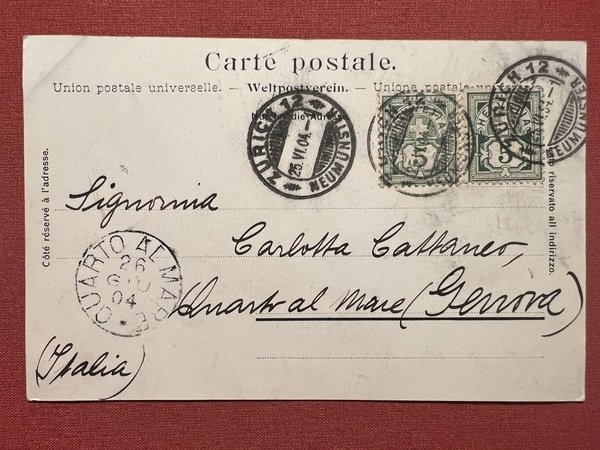 Carte postale.
Union postale universelle. - Weltpostverein. - Unione postale
die Adresse
Côté réservé à l'adresse.
riservato all indirizzo.
ZÜRICH 12
25.VI.04.
NEUMÜNSTER
ZÜRICH 12
NEUMÜNSTER
5
5
Signorina
Carlotta Cattaneo,
Quarto al Mare (Genova)
(Italia)
QUARTO AL MARE
26
GIU
04